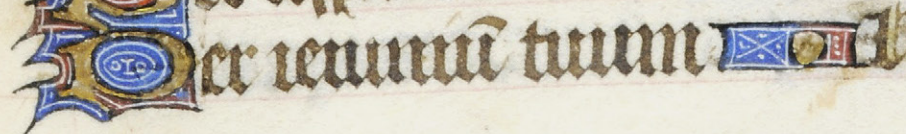 Per ieiuniū tuum l